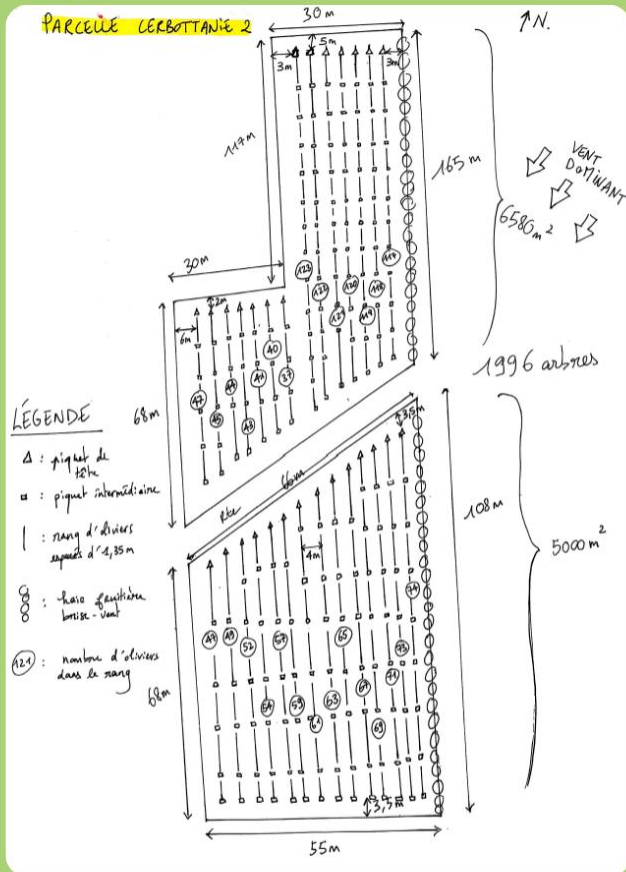 PARCELLE CERBOTTANIE 2
30m
↑N.
5m
3m
3m
117m
165m
VENT
DOMINANT
6580m²
30m
2m
6m
123
122
121
120
119
118
117
40
37
47
45
44
43
41
68m
1996 arbres
LÉGENDE
Δ : piquet de
tête
: piquet intermédiaire
| : rang d'oliviers
espacés d'1,35m
: haie fruitière
brise-vent
121 : nombre d'oliviers
dans le rang
Rte
66m
3,5m
4m
108m
5000m²
68m
47
49
52
54
57
59
61
63
65
67
69
71
73
74
3,5m
55m